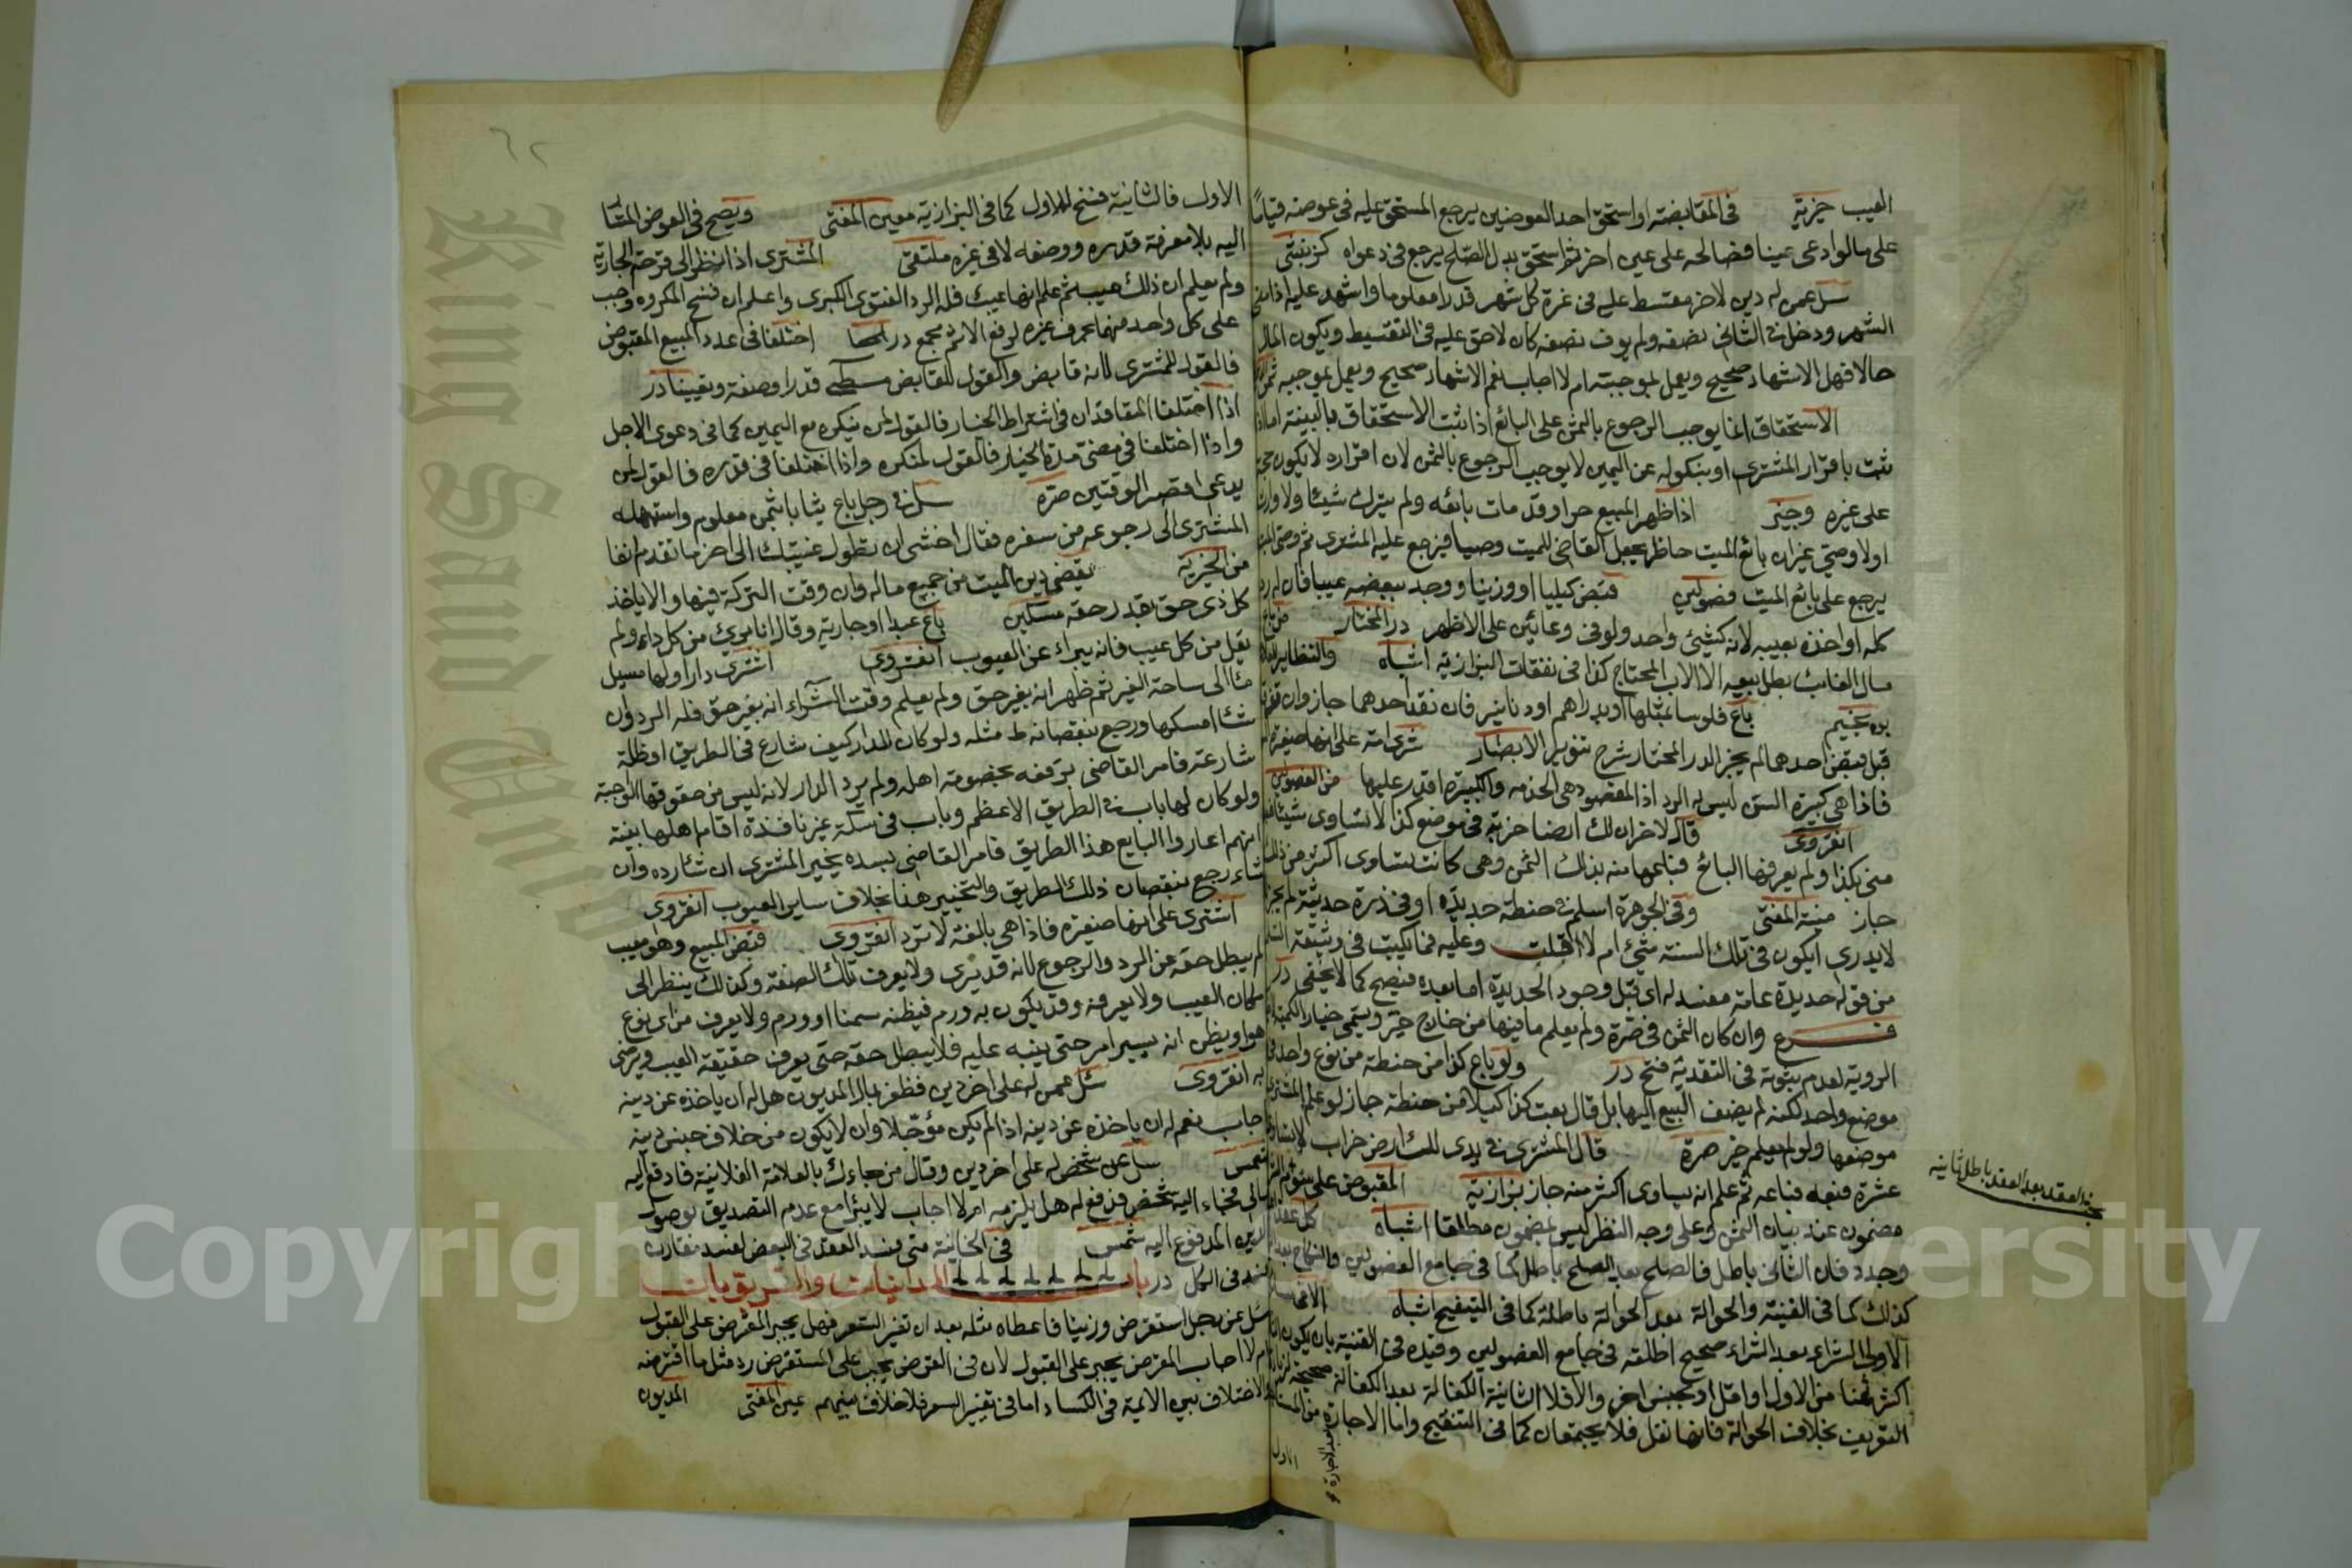 العيب خيرية في المقايضة اواستحق احد العوضين يرجع المستحق عليه في عوضه قياما
على مالوادعى عينا فصالحه على عين اخر ثم استحق بدل الصلح يرجع في دعواه كذ
سئل عمن له دين لاخر مقسط عليه في غرة كل شهر قدرا معلوما واشهد عليه اذا مضى
الشهر ودخل الثاني نصفه ولم يوف نصفه كان لاحق عليه في التقسيط ويكون المال
حالا فهل الاشهاد صحيح ويعمل بموجبه ام لا اجاب نعم الاشهاد صحيح ويعمل بموجبه
الاستحقاق انما يوجب الرجوع بالثمن على البائع اذا ثبت الاستحقاق بالبينة اما اذا
ثبت باقرار المشترى او بنكوله عن اليمين لا يوجب الرجوع بالثمن لان اقراره لا يكون حجة
على غيره وجيز اذا ظهر المبيع حرا وقد مات بائعه ولم يترك شيئا ولا وارثا
اولا وصي غير ان بائع الميت حاظر يجعل القاضي للميت وصيا فيرجع عليه المشترى ثم وصى الميت
يرجع على بائع الميت فصولين قبض كيليا او وزنيا ووجد ببعضه عيبا فان له رد
كله او اخذه بعيبه لانه كشيئ واحد ولو في وعائين على الاظهر در المختار من باع
مال الغائب بطل بيعه الا الاب المحتاج كذا في نفقات البزازية اشباه والنظاير
باع فلوسا بمثلها او بدراهم او دنانير فان نقد احدهما جاز وان تفرقا
قبل قبض احدهما لم يجز الدر المختار شرح تنوير الابصار شرى امة على انها صغيرة
فاذا هي كبيرة السن ليس له الرد اذ المقصود هي الخدمه والكبيرة اقدر عليها من الفصولين
انقروى قال لاخر ان لك ارضا خربة في موضع كذا لا تساوى شيئا
منى بكذا ولم يعرفها البائع فباعها منه بذلك الثمن وهى كانت تساوى اكثر من ذلك
جاز منية المفتى وفي الجوهرة اسلم في حنطة جديدة او في ذرة حديثة لم يجز
لا يدرى ايكون في تلك السنة شيئ ام لا قلت وعليه فما يكتب في وثيقة
من قوله جديدة عامه مفسد له اى قبل وجود الجديدة اما بعده فيصح كما لا يخفى در
فرع وان كان الثمن في صرة ولم يعلم ما فيها من خارج خير ويسمى خيار الكمية لا
الروية لعدم ثبوته في النقدية فتح در ولو باع كذا من حنطة من نوع واحد في
موضع واحد لكنه لم يضف البيع اليها بل قال بعت كذا كيلا من حنطة جاز لو علم المشترى
موضعها ولو لم يعلم خير صرة قال المشترى في يدى لك ارض خراب لا تساوى
عشرة فبعه فباعه ثم علم انه يساوى اكثر منه جاز بزازية المقبوض على سوم الشراء
مضمون عند بيان الثمن وعلى وجه النظر ليس بمضمون مطلقا اشباه كل عقد
وجدد فان الثانى باطل فالصلح بعد الصلح باطل كما في جامع الفصولين والنكاح بعد
كذلك كما في القنية والحوالة بعد الحوالة باطلة كما في التنقيح اشباه الا في
الاولى الشراء بعد الشراء صحيح اطلقه في جامع الفصولين وقيده في القنية بان يكون
اكثر ثمنا من الاول او اقل او بجنس اخر والا فلا الثانية الكفالة بعد الكفالة صحيحة
التوثيق بخلاف الحوالة فانها نقل فلا يجتمعان كما في التنقيح واما الاجارة
بعد الاجارة
الاول
العقد بعد العقد باطل ثانيه
٦٢
الاول فالثانية فسخ للاول كما في البزازية معين المفتى ويصح في العوض المشار
اليه بلا معرفة قدره ووصفه لا في غيره ملتقى المشترى اذا نظر الى قرحة الجارية
ولم يعلم ان ذلك عيب ثم علم انها عيب فله الرد الفتوى الكبرى واعلم ان فسخ المكروه وجب
على كل واحد منهما بحرف غيره لرفع الاثم مجمع در اختلفا في عدد المبيع المقبوض
فالقول للمشترى لانه قابض والقول للقابض قدرا وصفة وتعيينا در
اذا اختلفا المتعاقدان في اشتراط الخيار فالقول لمن ينكره مع اليمين كما في دعوى الاجل
واذا اختلفا في مضى مدة الخيار فالقول لمنكره واذا اختلفا في قدره فالقول لمن
يدعى اقصر الوقتين صره سئل في رجل باع ثيابا بثمن معلوم واستمهله
المشترى الى رجوعه من سفره فقال اخشى ان تطول غيبتك الى اخر ما تقدم انفا
من الخيرية يقضى دين الميت من جميع ماله وان وقت التركة فبها والا ياخذ
كل ذى حق بقدر حقه مسكين باع عبدا او جارية وقال انا برئ من كل داء ولم
يقل من كل عيب فانه يبراء عن العيوب انقروى اشترى دارا ولها مسيل
ماء الى ساحة الغير ثم ظهر انه بغير حق ولم يعلم وقت الشراء انه بغير حق فله الرد وان
شاء امسكها ورجع بنقصانه ط مثله ولو كان للدار كنيف شارع في الطريق او ظلة
شارعة فامر القاضى برفعه بخصومة اهله ولم يرد الدار لانه ليس من حقوقها الواجبة
ولو كان لها باب في الطريق الاعظم وباب في سكة غير نافذة اقام اهلها بينة
انهم اعاروا البايع هذا الطريق فامر القاضى بسده يخير المشترى ان شاء رده وان
شاء رجع بنقصان ذلك الطريق والتخيير هنا بخلاف ساير العيوب انقروى
اشترى على انها صغيرة فاذا هي بالغة لا ترد انقروى قبض المبيع وهو معيب
لم يبطل حقه عن الرد والرجوع لانه قد يرى ولا يعرف تلك الصفة وكذلك ينظر الى
مكان العيب ولا يعرفه وقد يكون به ورم فيظنه سمنا او ورم ولا يعرف من اى نوع
هو او يظن انه يسير امر حتى ينبه عليه فلا يبطل حقه حتى يعرف حقيقة العيب ويرضى
به انقروى سئل عمن له على اخر دين فظفر بمال المديون هل له ان ياخذه عن دينه
اجاب نعم له ان ياخذه عن دينه اذا لم يكن مؤجلا وان لا يكون من خلاف جنس دينه
شمس سئل عن شخص له على اخر دين وقال من جاءك بالعلامة الفلانية فادفع اليه
مالى فجاء اليه شخص فدفع له هل يلزمه ام لا اجاب لا يبرأ مع عدم التصديق بوصول
الدين المدفوع اليه شمس في الخانية متى فسد العقد في البعض لفسد مقارن
فسد في الكل در باب المداينات
سئل عن رجل استقرض وزنيا فاعطاه مثله بعد ان تغير السعر فهل يجبر المقرض على القبول
ام لا اجاب المقرض يجبر على القبول لان في القرض يجب على المستقرض رد مثل ما اقترضه
والاختلاف بين الائمة في الكساد اما في تغير السعر فلا خلاف بينهم عين المفتى المديون
King Saud University
Copyright © King Saud University